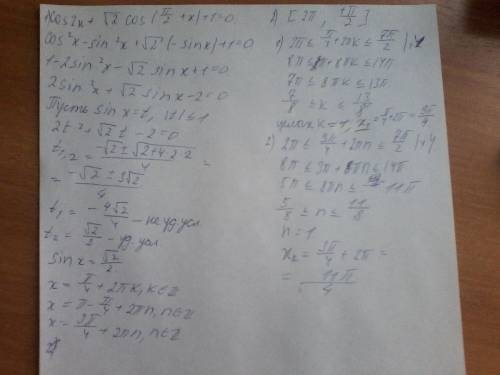 cos2x + √2 cos(π/2 + x) + 1 = 0
cos²x - sin²x + √2(-sinx) + 1 = 0
1 - 2sin²x - √2 sinx + 1 = 0
2sin²x + √2 sinx - 2 = 0
Пусть sinx = t, |t| ≤ 1
2t² + √2 t - 2 = 0
t₁,₂ = (-√2 ± √(2+4·2·2))/4 =
= (-√2 ± 3√2)/4
t₁ = -4√2/4 - не уд. усл.
t₂ = √2/2 - уд. усл.
sinx = √2/2
x = π/4 + 2πk, k∈Z
x = π - π/4 + 2πn, n∈Z
x = 3π/4 + 2πn, n∈Z
[2π, 7π/2]
1) 2π ≤ π/4 + 2πk ≤ 7π/2 |·4
8π ≤ π + 8πk ≤ 14π
7π ≤ 8πk ≤ 13π
7/8 ≥ k ≤ 13/8
k = 1, x₁ = π/4 + 2π = 9π/4
2) 2π ≤ 3π/4 + 2πn ≤ 7π/2 |·4
8π ≤ 3π + 8πn ≤ 14π
5π ≤ 8πn ≤ 11π
5/8 ≥ n ≤ 11/8
n = 1
x₂ = 3π/4 + 2π =
= 11π/4